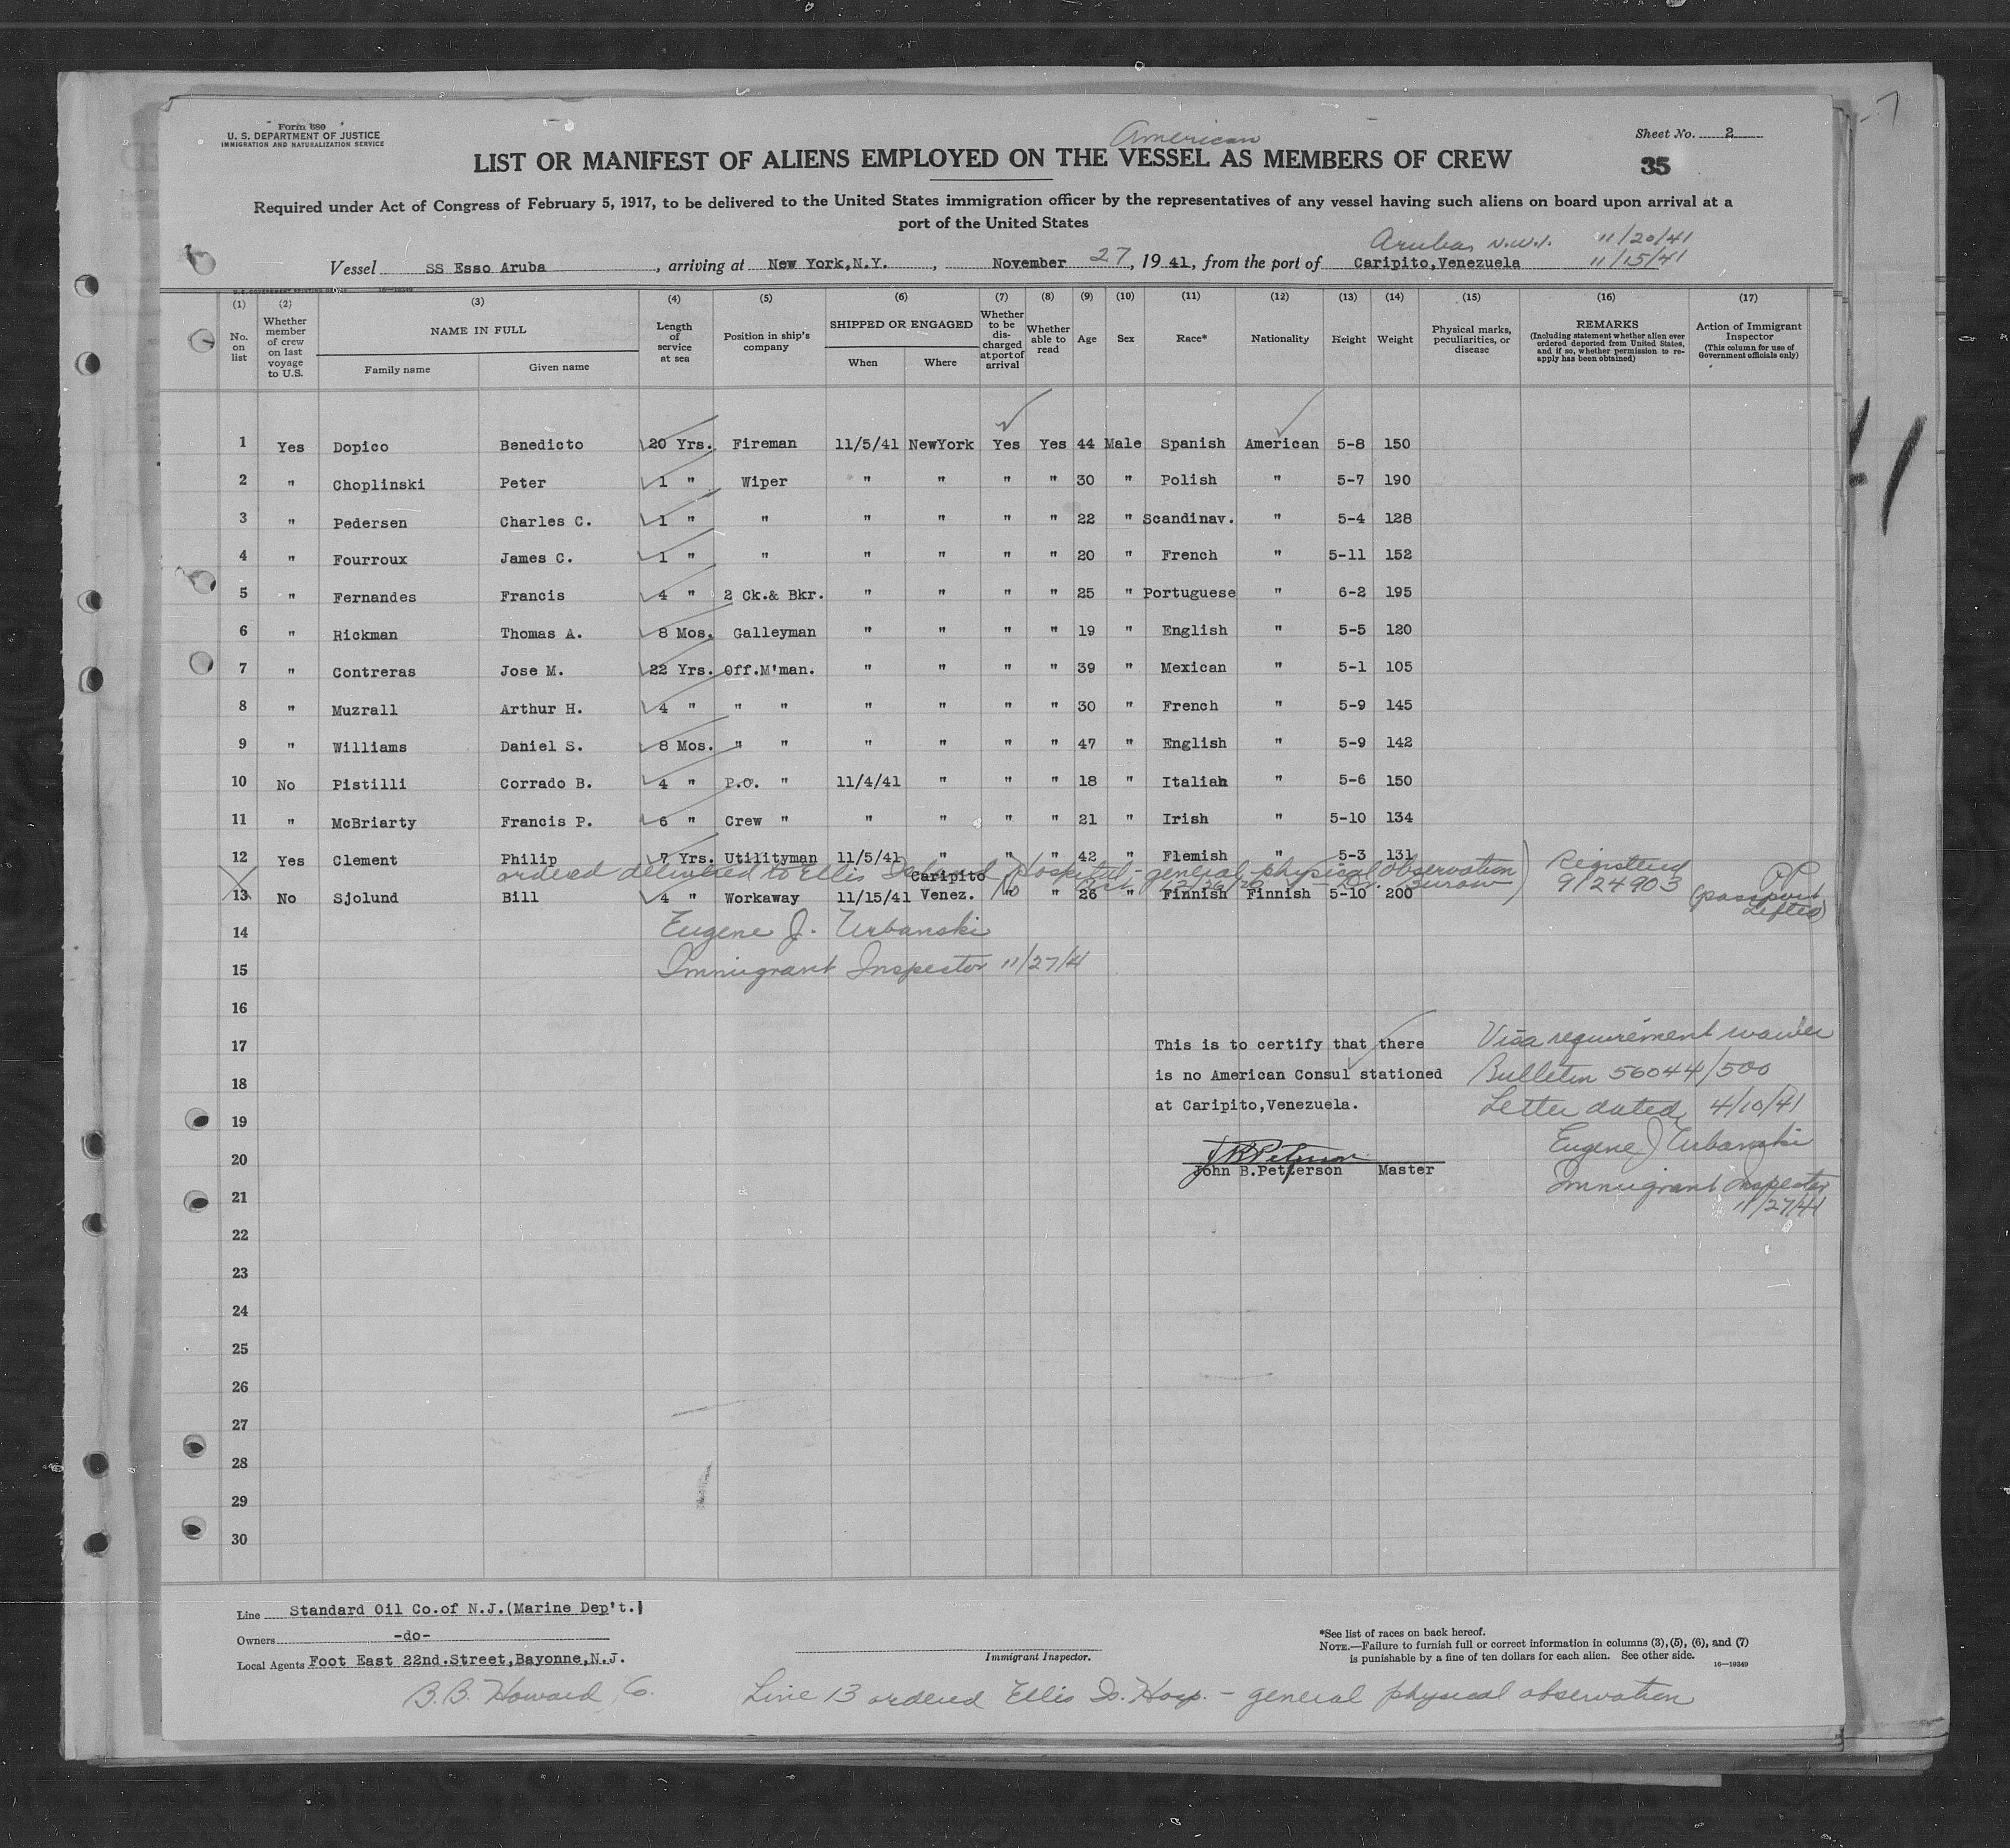 Form 680
U. S. DEPARTMENT OF JUSTICE
IMMIGRATION AND NATURALIZATION SERVICE
Sheet No. 2
American
LIST OR MANIFEST OF ALIENS EMPLOYED ON THE VESSEL AS MEMBERS OF CREW
35
Required under Act of Congress of February 5, 1917, to be delivered to the United States immigration officer by the representatives of any vessel having such aliens on board upon arrival at a
port of the United States
Aruba N.W.I. 11/20/41
Vessel SS Esso Aruba, arriving at New York,N.Y., November 27, 1941, from the port of Caripito,Venezuela 11/15/41
(1) (2) (3) (4) (5) (6) (7) (8) (9) (10) (11) (12) (13) (14) (15) (16) (17)
No. on list Whether member of crew on last voyage to U.S. NAME IN FULL Family name Given name Length of service at sea Position in ship's company SHIPPED OR ENGAGED When Where Whether to be discharged at port of arrival Whether able to read Age Sex Race* Nationality Height Weight Physical marks, peculiarities, or disease REMARKS (Including statement whether alien ever ordered deported from United States, and if so, whether permission to reapply has been obtained) Action of Immigrant Inspector (This column for use of Government officials only)
1 Yes Dopico Benedicto 20 Yrs. Fireman 11/5/41 NewYork Yes Yes 44 Male Spanish American 5-8 150
2 " Choplinski Peter 1 " Wiper " " " " 30 " Polish " 5-7 190
3 " Pedersen Charles C. 1 " " " " " " 22 " Scandinav. " 5-4 128
4 " Fourroux James C. 1 " " " " " " 20 " French " 5-11 152
5 " Fernandes Francis 4 " 2 Ck.& Bkr. " " " " 25 " Portuguese " 6-2 195
6 " Rickman Thomas A. 8 Mos. Galleyman " " " " 19 " English " 5-5 120
7 " Contreras Jose M. 22 Yrs. Off.M'man. " " " " 39 " Mexican " 5-1 105
8 " Muzrall Arthur H. 4 " " " " " " " 30 " French " 5-9 145
9 " Williams Daniel S. 8 Mos. " " " " " " 47 " English " 5-9 142
10 No Pistilli Corrado B. 4 " P.O. " 11/4/41 " " " 18 " Italian " 5-6 150
11 " McBriarty Francis P. 6 " Crew " " " " " 21 " Irish " 5-10 134
12 Yes Clement Philip 7 Yrs. Utilityman 11/5/41 " " " 42 " Flemish " 5-3 131
ordered delivered to Ellis Island Hospital - general physical observation Registered
13 No Sjolund Bill 4 " Workaway 11/15/41 Caripito Venez. No " 26 " Finnish Finnish 5-10 200 9124903 (passport lifted)
14 Eugene J. Urbanski
15 Immigrant Inspector 11/27/41
16
17 This is to certify that there Visa requirement waiver
18 is no American Consul stationed Bulletin 56044/500
19 at Caripito,Venezuela. Letter dated 4/10/41
Eugene J Urbanski
20 John B.Petterson Master
21 Immigrant Inspector
11/27/41
22
23
24
25
26
27
28
29
30
Line Standard Oil Co.of N.J.(Marine Dep't.)
Owners -do-
Local Agents Foot East 22nd.Street,Bayonne,N.J.
Immigrant Inspector.
*See list of races on back hereof.
NOTE.—Failure to furnish full or correct information in columns (3), (5), (6), and (7)
is punishable by a fine of ten dollars for each alien. See other side.
16—19349
B.B. Howard Co. Line 13 ordered Ellis Is. Hosp. - general physical observation